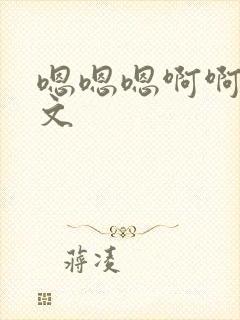 嗯嗯嗯啊啊
文
蒋凌